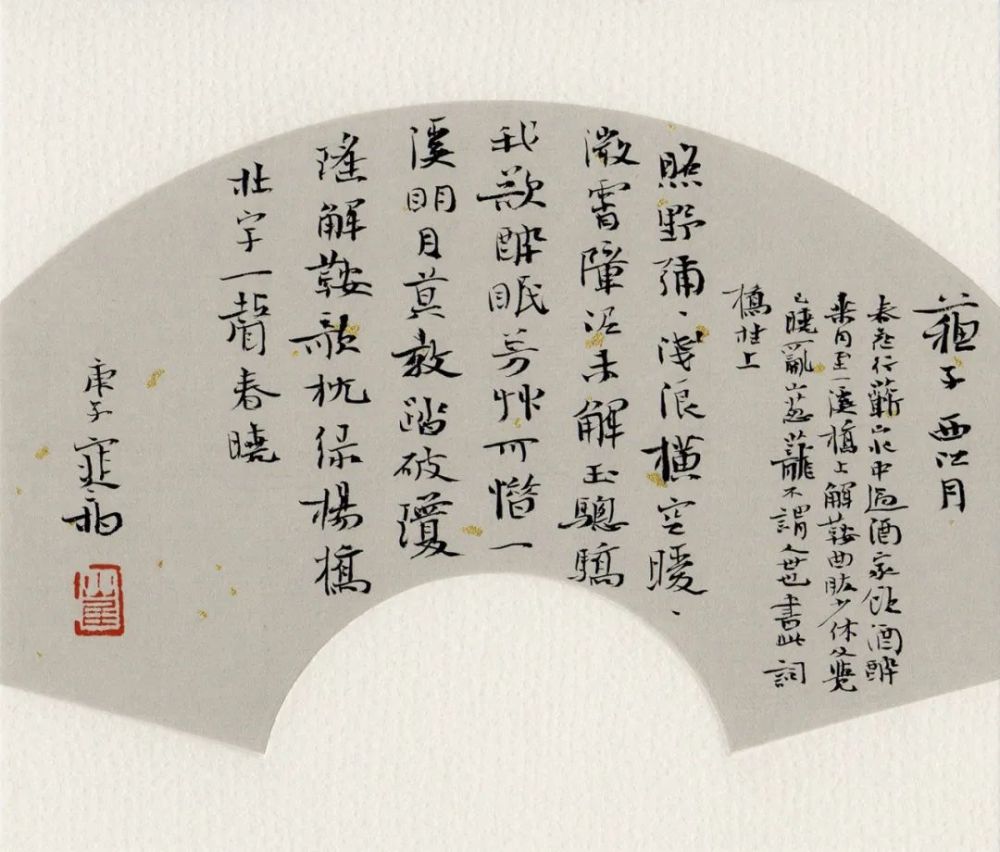 蘓子西江月
春夜行蘄水中過酒家飲酒醉
乘月至一溪橋上解鞍曲肱少休及覺
已曉亂山葱蘢不謂人世也書此詞
橋柱上
照野彌、淺浪橫空曖、
微霄障泥未解玉驄驕
我欲醉眠芳艸可惜一
溪明月莫教踏破瓊
瑤解鞍欹枕綠楊橋
杜宇一聲春曉
庚子